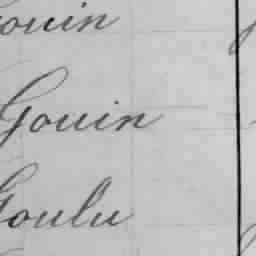 Gouin
Gouin
Goulu